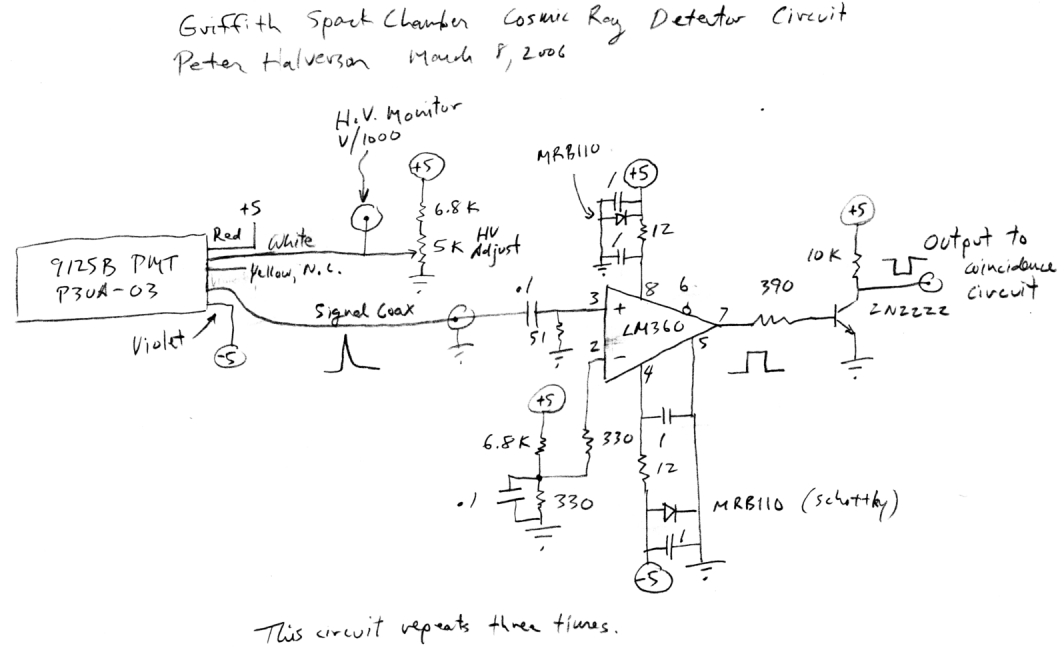 Griffith Spark Chamber Cosmic Ray Detector Circuit
Peter Halverson March 8, 2006
H.V. Monitor
V/1000
+5
6.8K
5K HV
Adjust
+5
Red
White
Yellow, N.C.
9125B PMT
P30A-03
Violet
-5
Signal Coax
.1
51
MRB110
1
1
+5
12
8
6
3
+
LM360
2
-
7
5
4
390
+5
10K
Output to
coincidence
circuit
2N2222
+5
6.8K
330
.1
330
1
12
MRB110 (Schottky)
1
-5
This circuit repeats three times.